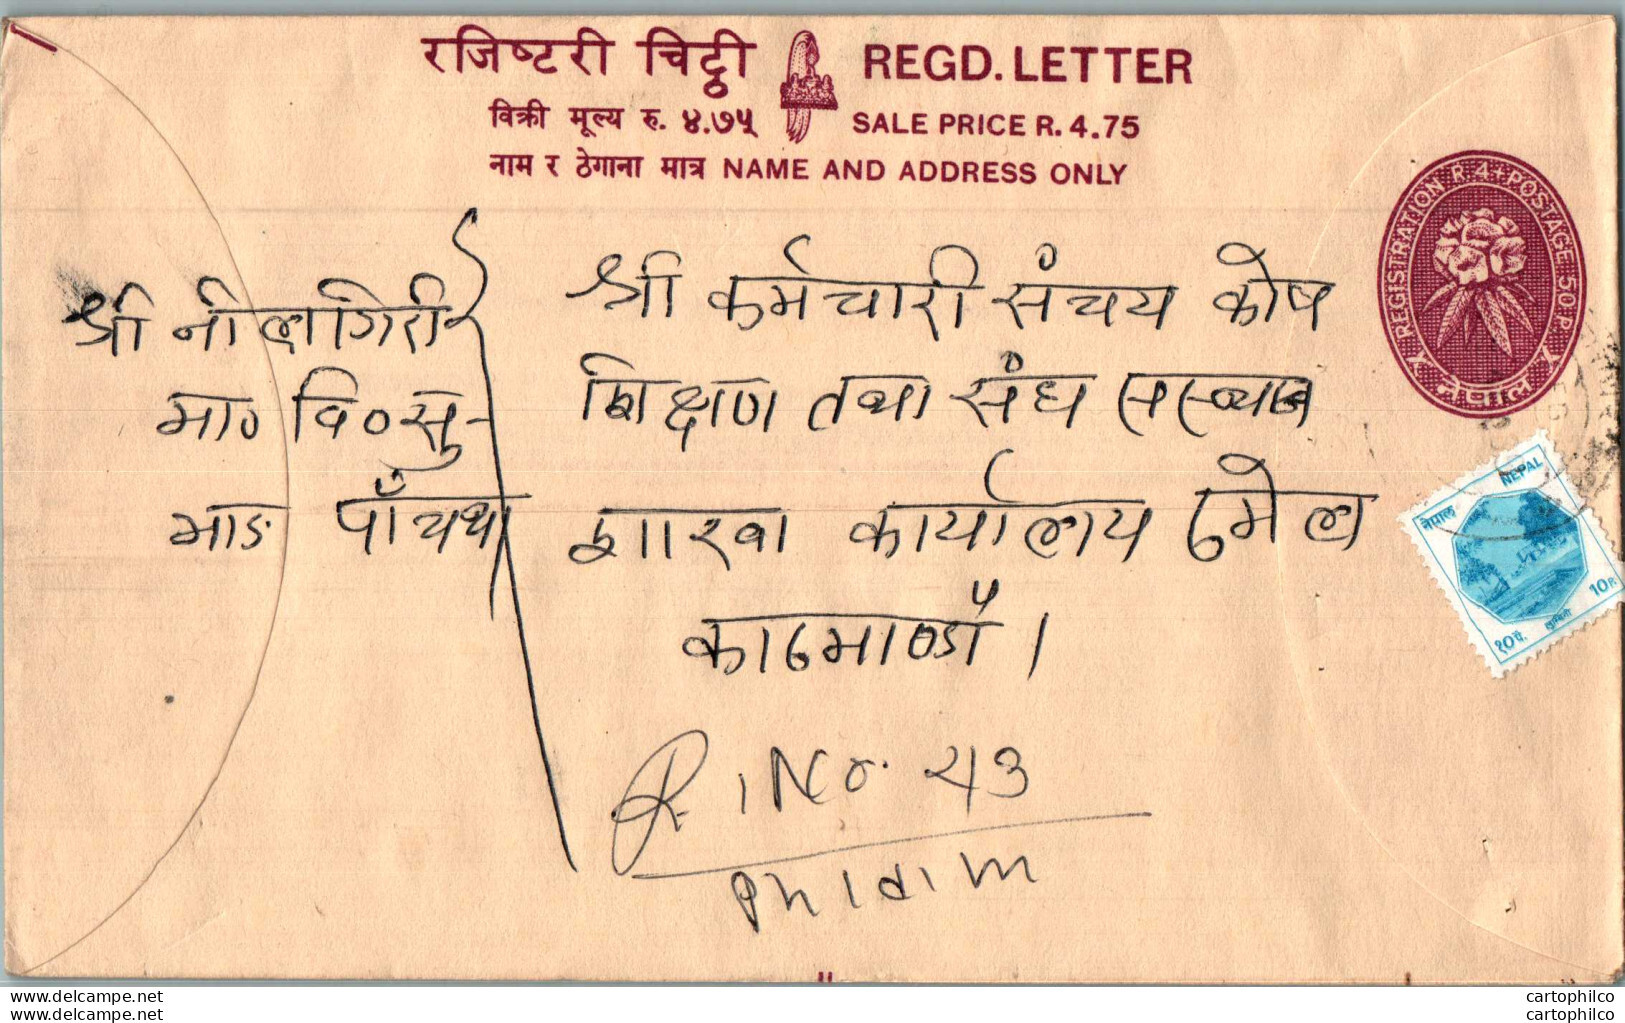 रजिष्टरी चिट्ठी REGD. LETTER
विक्री मूल्य रु. ४.७५ SALE PRICE R. 4.75
नाम र ठेगाना मात्र NAME AND ADDRESS ONLY
REGISTRATION R 4 + POSTAGE 50 P.
नेपाल
श्री नीलागिरी
मा० वि० सु-
भाङ पाँचथर
श्री कर्मचारी संचय कोष
शिक्षण तथा संघ
शाखा कार्यालय ठमेल
काठमाण्डौं ।
R. No. 43
Phidim
नेपाल NEPAL
१० पै. लुम्बिनी 10 P.
www.delcampe.net cartophilco
www.delcampe.net cartophilco